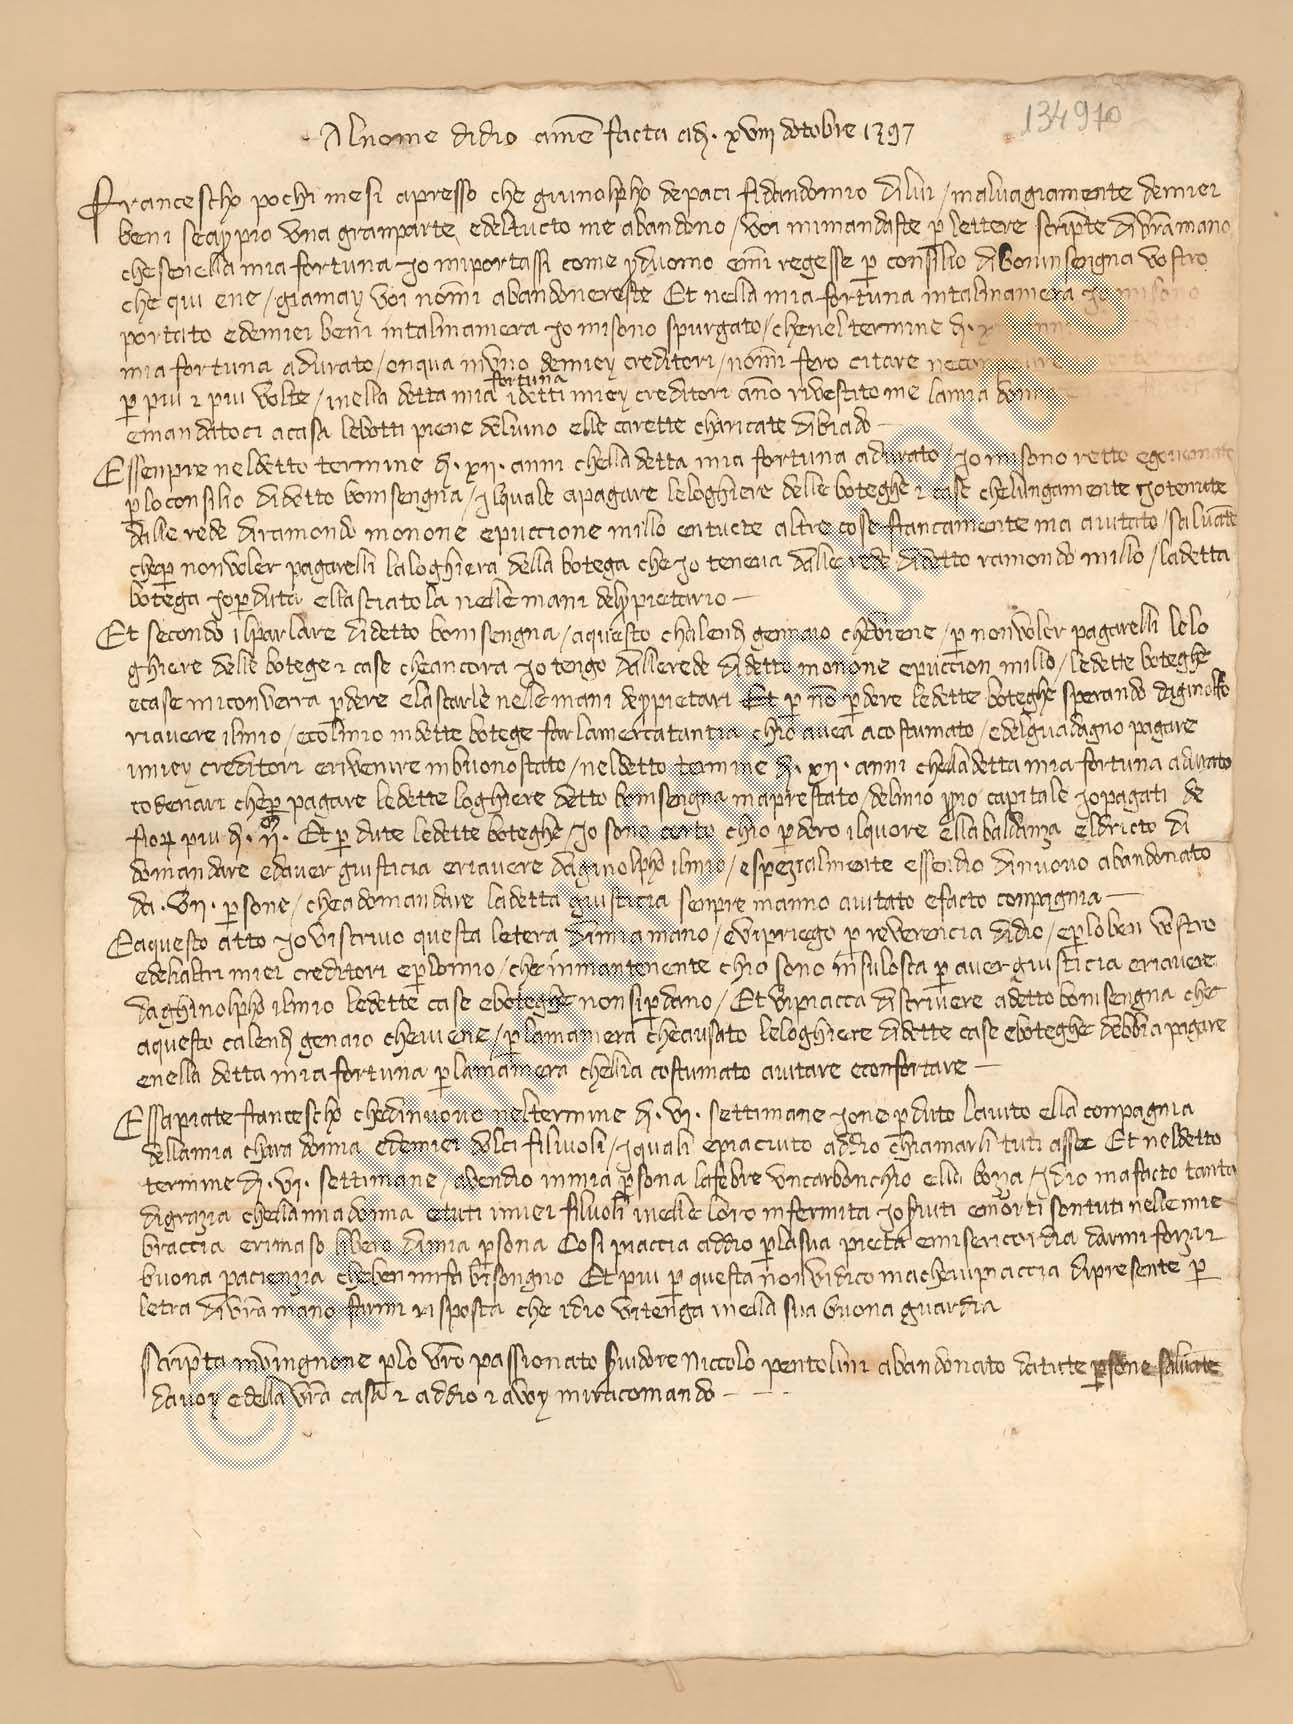 134970
Al nome didio amē facta adj. xviii dotobre 1397
Francescho pochi mesi apresso che giunolpho depaci fidandomio dilui / malvagiamente demiei
beni seappio una granparte edeltucto me abandono / voi mimandaste p lettere scripte di vrā mano
che senella mia fortuna Jo miportassi come pduomo emi regesse p consilio diboninsengna vostro
che qui ene / giamay voi nomi abandonereste Et nella mia fortuna intalmamera Jo misono
portato edemiei beni intalmamera Jo misono spurgato / chenel termine d.
mia fortuna adurato / onqua nuno demiey creditori / nomi fero citare ne
p piu z piu volte / nella detta mia fortuna idetti miey creditori āno rivestito me lamia
emandatoci acasa lebotti piene deluino elle carette charicate dibiado —
Essenpre neldetto termine d. xij. anni chella detta mia fortuna adurato / Jo misono retto egovernato
p loconsilio didetto bonisengna / Ilquale apagare leloghiere delle boteghe z case chelungamente Jotenute
dalle rede diramondo monone epuccione millo entucte altre cose francamente ma aiutato / salvate
chep nonvoler pagarelli laloghiera della botega che Jo teneva dalle rede didetto ramondo millo / ladetta
botega Jopduta ellasciatola nelle mani delppietario —
Et secondo ilparlare didetto bonisengna / aquesto chalendj gennaio cheviene / p nonvoler pagarelli lelo
ghiere delle botege z case cheancora Jo tengo dallerede didetto monone epuccion millo / ledette boteghe
ecase miconverra pdere elascarle nellemani deppietari Et p nō pdere ledette boteghe sperando daginolfo
riavere ilmio / ecolmio indette botege far lamercatantia chio avea acostumato / edelguadagno pagare
imiey creditori erivenire inbuonostato / neldetto termine d. xij. anni chelladetta mia fortuna adurato
codenari chep pagare ledette loghiere detto bonisengna maprestato / delmio ppio capitale Jopagati de
fior piu d. ij. Et pdute ledette boteghe / Jo sono certo chio pdero ilquore ella baldanza eldricto di
domandare edaver giusticia eriavere daginolpho ilmio / espezialmente essendo dinuovo abandonato
da. vij. psone / cheadomandare ladetta giusticia senpre manno aiutato efacto conpagnia —
Eaquesto atto Jo viscrivo questa letera dimiamano / evipriego p reverencia didio / eploben vostro
edeglialtri miei creditori eplomio / che inmantenente chio sono insulosta p aver giusticia eriavere
daghinolpho ilmio ledette case eboteghe nonsipdano / Et vipiacca discrivere adetto bonisengna che
aquesto calendj genaio cheviene / plamamera cheausato leloghiere didette case eboteghe debbia pagare
enella detta mia fortuna plamamera chellia costumato aiutare econfortare —
Essapiate francescho chedinuovo neltermine d. vi. settimane Jone pduto laiuto ella conpagnia
dellamia chara donna edemiei dolci filiuoli / iquali epiaciuto addio chiamarli tuti asse Et neldetto
termine d. vi. settimane / avendio inmia psona lafebre uncarbonchio ella boza / Jdio mafacto tanta
digrazia chellamiadonna etuti imiei filiuoli nelle loro infermita Jo serviti emorti sontuti nelle mie
braccia erimaso libero dimia psona Cosi piaccia addio plasua pieta emisericordia darmi forza z
buona pacienzia cheben mifa bisongno Et piu p questa nonvidico mache vipiaccia dipresente p
letra divrā mano farmi risposta che idio vitenga nella sua buona guardia
Scripta invingnone plo vro passionato svidore Niccolo pentolini abandonato datute psone salvate
davoy edella vrā casa z addio z avoy miracomando —